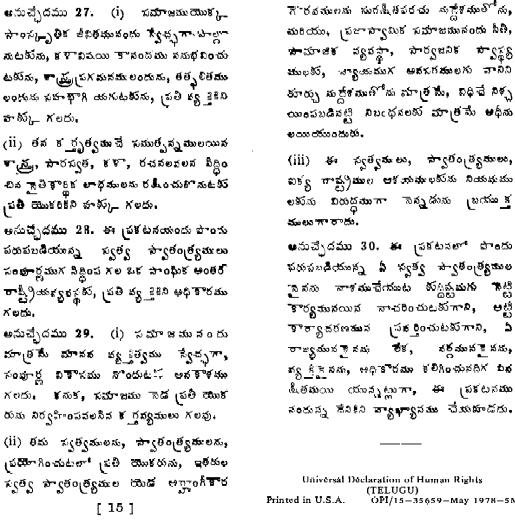 అనుచ్ఛేదము 27. (i) సమాజముయొక్క
సాంస్కృతిక జీవితమునందు స్వేచ్ఛగా పాల్గొ
నుటకును, కళా విషయి కానందము ననుభవించు
టకును, శాస్త్ర ప్రగమనములందును, తత్ఫలితము
లందును సహభాగి యగుటకును, ప్రతి వ్యక్తికిని
హక్కు గలదు.
(ii) తన కర్తృత్వముచే సముత్పన్నములయిన
శాస్త్ర, సారస్వత, కళా, రచనలవలన సిద్ధిం
చిన నైతికార్థిక లాభములను రక్షించుకొనుటకు
ప్రతి యొకరికిని హక్కు గలదు.
అనుచ్ఛేదము 28. ఈ ప్రకటనయందు పొందు
పఱుపబడియున్న స్వత్వ స్వాతంత్ర్యములు
సంపూర్ణముగ సిద్ధింప గల ఒక సాంఘిక అంతర్
రాష్ట్రీయవ్యవస్థకు, ప్రతి వ్యక్తికిని అధికారము
గలదు.
అనుచ్ఛేదము 29. (i) సమాజమునందు
మాత్రమే మానవ వ్యక్తిత్వము స్వేచ్ఛగా,
సంపూర్ణ వికాసము నొందుటకు అవకాశము
గలదు. కనుక, సమాజము నెడ ప్రతి యొక
రును నిర్వహింపవలసిన కర్తవ్యములు గలవు.
(ii) తమ స్వత్వములను, స్వాతంత్ర్యములను,
ప్రయోగించుటలో ప్రతి యొకరును, ఇతరుల
స్వత్వ స్వాతంత్ర్యముల యెడ అంగీకార
[ 15 ]
గౌరవములను సురక్షితపరచు నుద్దేశములోను,
మఱియు, ప్రజాస్వామిక సమాజమునందు నీతి,
సామాజిక వ్యవస్థా, సార్వజనిక స్వాస్థ్య
ములకు, న్యాయముగ అవసరములగు వానిని
కూర్చు నుద్దేశముతోను మాత్రమే, విధిచే నిశ్చ
యింపబడినట్టి నిబంధనలకు మాత్రమే ఆధీను
లయియుందురు.
(iii) ఈ స్వత్వములు, స్వాతంత్ర్యములు,
ఐక్య రాష్ట్రముల ఆశయములకును నియమము
లకును విరుద్ధముగా నెన్నడును ప్రయుక్త
ములు గారాదు.
అనుచ్ఛేదము 30. ఈ ప్రకటనలో పొందు
పఱుపబడియున్న ఏ స్వత్వ స్వాతంత్ర్యముల
నైనను నాశముచేయుట కుద్దిష్టమగు నెట్టి
కార్యమునయిన నాచరించుటకుగాని, అట్టి
కార్యాచరణమున ప్రవర్తించుటకుగాని, ఏ
రాజ్యమునకైనను లేక, వర్గమునకైనను,
వ్యక్తికైనను, అధికారము కలిగించునదిగ వివ
క్షితమయి యున్నట్లుగా, ఈ ప్రకటనము
నందున్న దేనికిని వ్యాఖ్యానము చేయరాదు.
Universal Declaration of Human Rights
(TELUGU)
Printed in U.S.A. OPI/15—35659—May 1978—5M